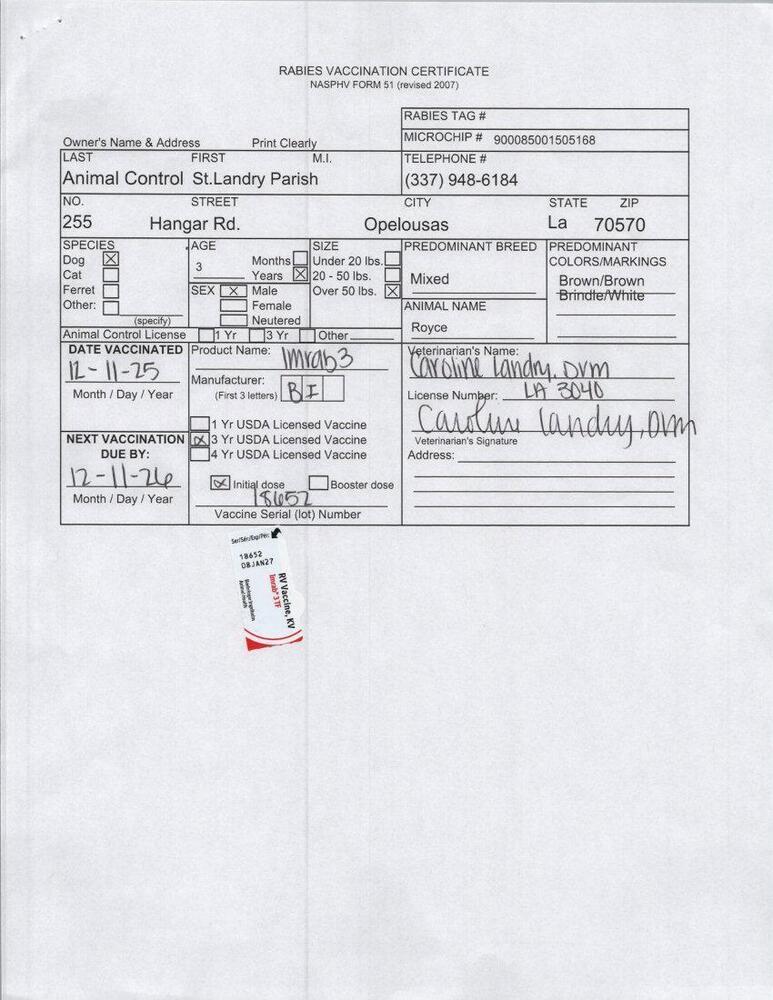 RABIES VACCINATION CERTIFICATE
NASPHV FORM 51 (revised 2007)
RABIES TAG #
Owner's Name & Address Print Clearly
MICROCHIP # 900085001505168
LAST FIRST M.I.
TELEPHONE #
Animal Control St.Landry Parish
(337) 948-6184
NO. STREET CITY STATE ZIP
255 Hangar Rd. Opelousas La 70570
SPECIES
Dog X
Cat
Ferret
Other:
(specify)
AGE
3 Months
Years X
SEX X Male
Female
Neutered
SIZE
Under 20 lbs.
X 20 - 50 lbs.
Over 50 lbs. X
PREDOMINANT BREED
Mixed
PREDOMINANT
COLORS/MARKINGS
Brown/Brown
Brindle/White
ANIMAL NAME
Royce
Animal Control License 1 Yr 3 Yr Other
DATE VACCINATED
12-11-25
Month / Day / Year
NEXT VACCINATION
DUE BY:
12-11-26
Month / Day / Year
Product Name: Imrab 3
Manufacturer:
(First 3 letters) B I
1 Yr USDA Licensed Vaccine
X 3 Yr USDA Licensed Vaccine
4 Yr USDA Licensed Vaccine
X Initial dose Booster dose
18652
Vaccine Serial (lot) Number
Veterinarian's Name:
Caroline Landry, DVM
License Number: LA 3040
Caroline Landry, DVM
Veterinarian's Signature
Address:
Ser/Sér/Exp/Pér:
18652
08JAN27
RV Vaccine, KV
Imrab® 3 TF
Boehringer Ingelheim
Animal Health